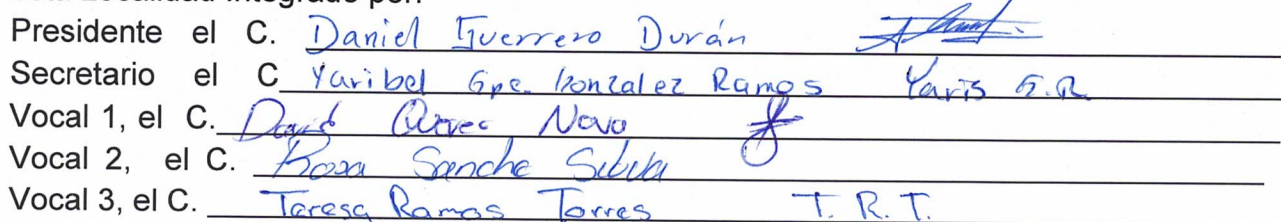 Presidente el C. Daniel Guerrero Durán
Secretario el C Yaribel Gpe. Gonzalez Ramos Yaris G.R
Vocal 1, el C. David Novo
Vocal 2, el C. Rosa Sanche
Vocal 3, el C. Teresa Ramos Torres T. R. T.